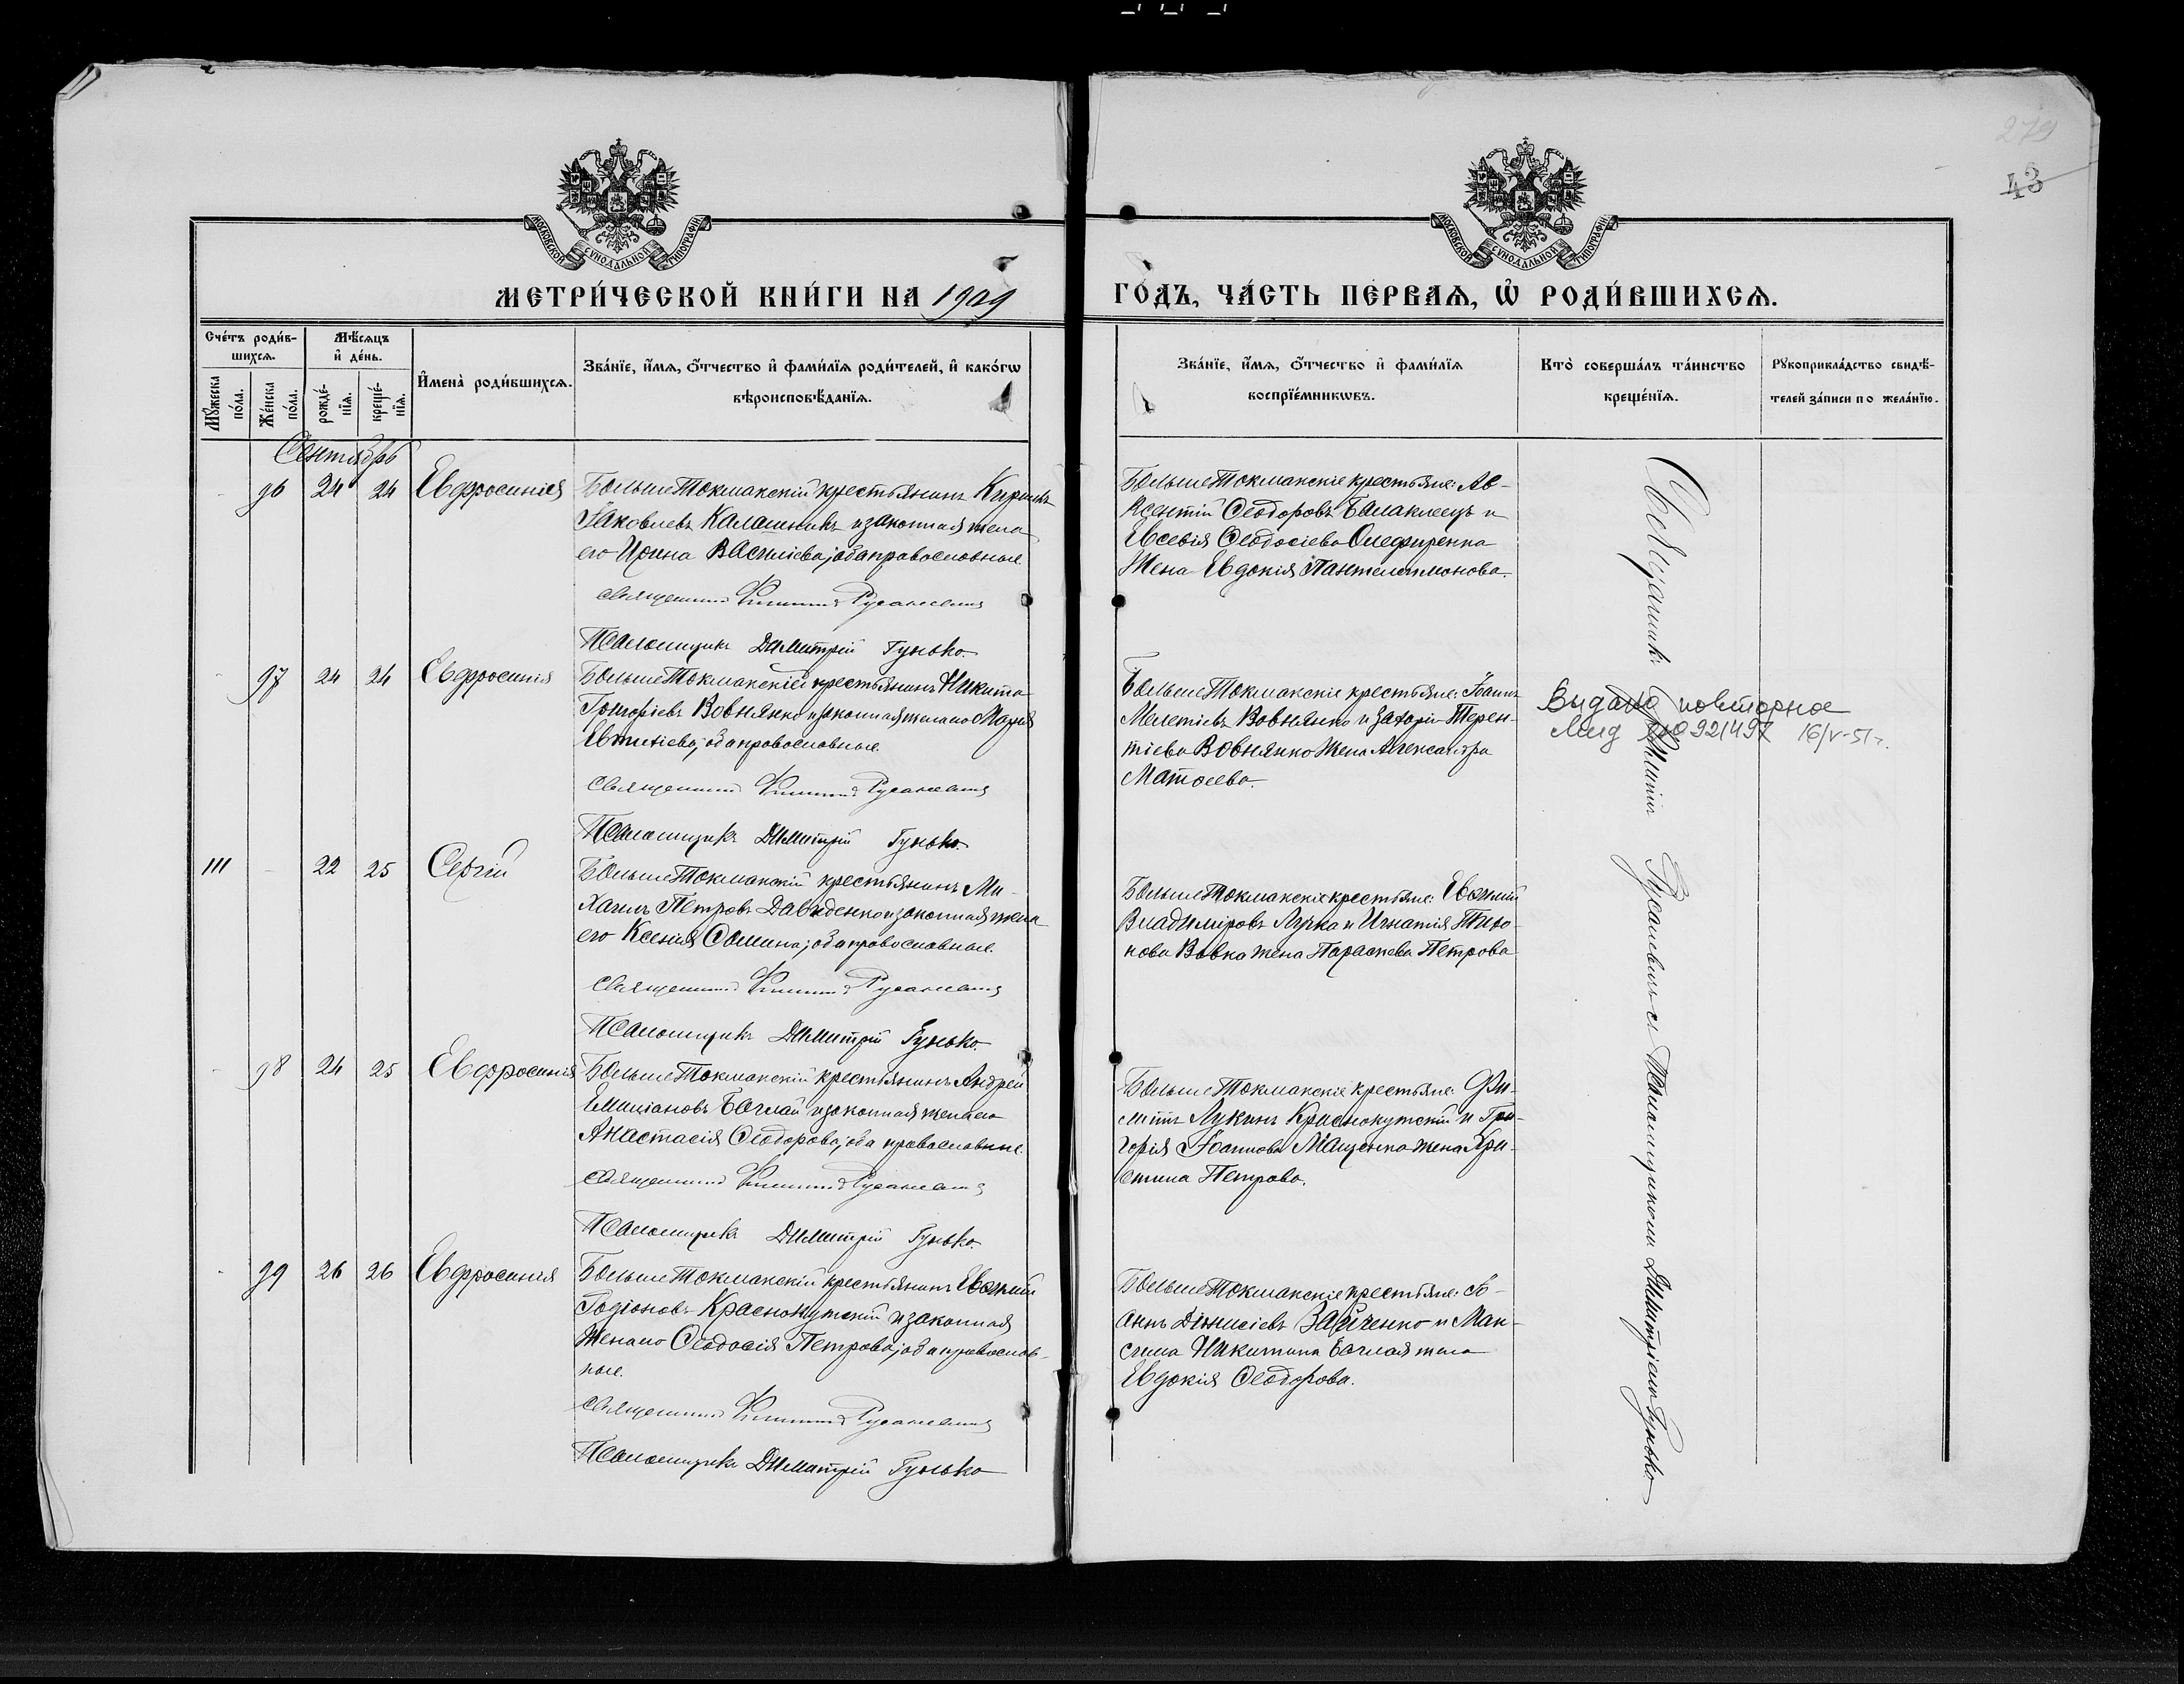 279
43
МОСКОВСКОЙ СУНОДАЛЬНОЙ ТИПОГРАФІИ
МОСКОВСКОЙ СУНОДАЛЬНОЙ ТИПОГРАФІИ
МЕТРИ́ЧЕСКОЙ КНИ́ГИ НА 1909
ГО́ДЪ, ЧА́СТЬ ПЕ́РВАѦ, Ѽ РОДИ́ВШИХСѦ.
Сче́тъ роди́в-
шихсѧ.
Мѣ́сѧцъ
и҆ де́нь.
Мꙋ́жеска
по́ла.
Же́нска
по́ла.
рожде́-
нїѧ.
креще́-
нїѧ.
И҆мена̀ роди́вшихсѧ.
Зва́нїе, и҆́мѧ, ѻ҆́тчество и҆ фами́лїѧ роди́телей, и҆ како́гѡ
вѣроисповѣ́данїѧ.
Зва́нїе, и҆́мѧ, ѻ҆́тчество и҆ фами́лїѧ
воспрїе́мникѡвъ.
Кто̀ соверша́лъ та́инство
креще́нїѧ.
Рꙋкоприкла́дство свидѣ́-
телей за́писи по жела́нїю.
Сентябрь
96 24 24 Евфросинія
Больше Токмакскій крестьянинъ Кириллъ
Іаковлевъ Калашникъ и законная жена
его Ирина Василіева; оба православные
Священникъ Филиппъ Русаневичъ
Псаломщикъ Димитрій Гунько
Больше Токмакскіе крестьяне: Ав-
ксентій Ѳеодоровъ Балаклеецъ и
Евсевія Ѳеодосіева Олефиренка
Жена Евдокія Пантелеимонова.
97 24 24 Евфросинія
Больше Токмакскій крестьянинъ Никита
Григоріевъ Вовнянко и законная жена его Марія
Евтихіева; оба православные.
Священникъ Филиппъ Русаневичъ
Псаломщикъ Димитрій Гунько.
Больше Токмакскіе крестьяне: Іоаннъ
Мелетіевъ Вовнянко и Захарія Терен-
тіева Вовнянко Жена Александра
Матѳеева.
Видано повторное
0921497 16/V-51г.
111 - 22 25 Сергій
Больше Токмакскій крестьянинъ Ми-
хаилъ Петровъ Давиденко и законная жена
его Ксенія Саввина; оба православные.
Священникъ Филиппъ Русаневичъ
Псаломщикъ Димитрій Гунько.
Больше Токмакскіе крестьяне: Евѳимій
Владиміровъ Лучка и Игнатія Тихо-
нова Вовка жена Параскева Петрова
98 24 25 Евфросинія
Больше Токмакскій крестьянинъ Андрей
Емиліановъ Баглай и законная жена его
Анастасія Ѳеодорова; оба православные.
Священникъ Филиппъ Русаневичъ
Псаломщикъ Димитрій Гунько.
Больше Токмакскіе крестьяне: Фи-
липпъ Лукинъ Краснокутскій и Гри-
горія Іоаннова Мащенка жена Хри-
стина Петрова.
99 26 26 Евфросинія
Больше Токмакскій крестьянинъ Евѳимій
Родіоновъ Краснокутскій и законная
Жена его Ѳеодосія Петрова; оба православ-
ные.
Священникъ Филиппъ Русаневичъ
Псаломщикъ Димитрій Гунько
Больше Токмакскіе крестьяне: Іо-
аннъ Діонисіевъ Зайченко и Мак-
сима Никитина Баглая жена
Евдокія Ѳеодорова.
Священникъ Филиппъ Русаневичъ съ Псаломщикомъ Димитріемъ Гунько